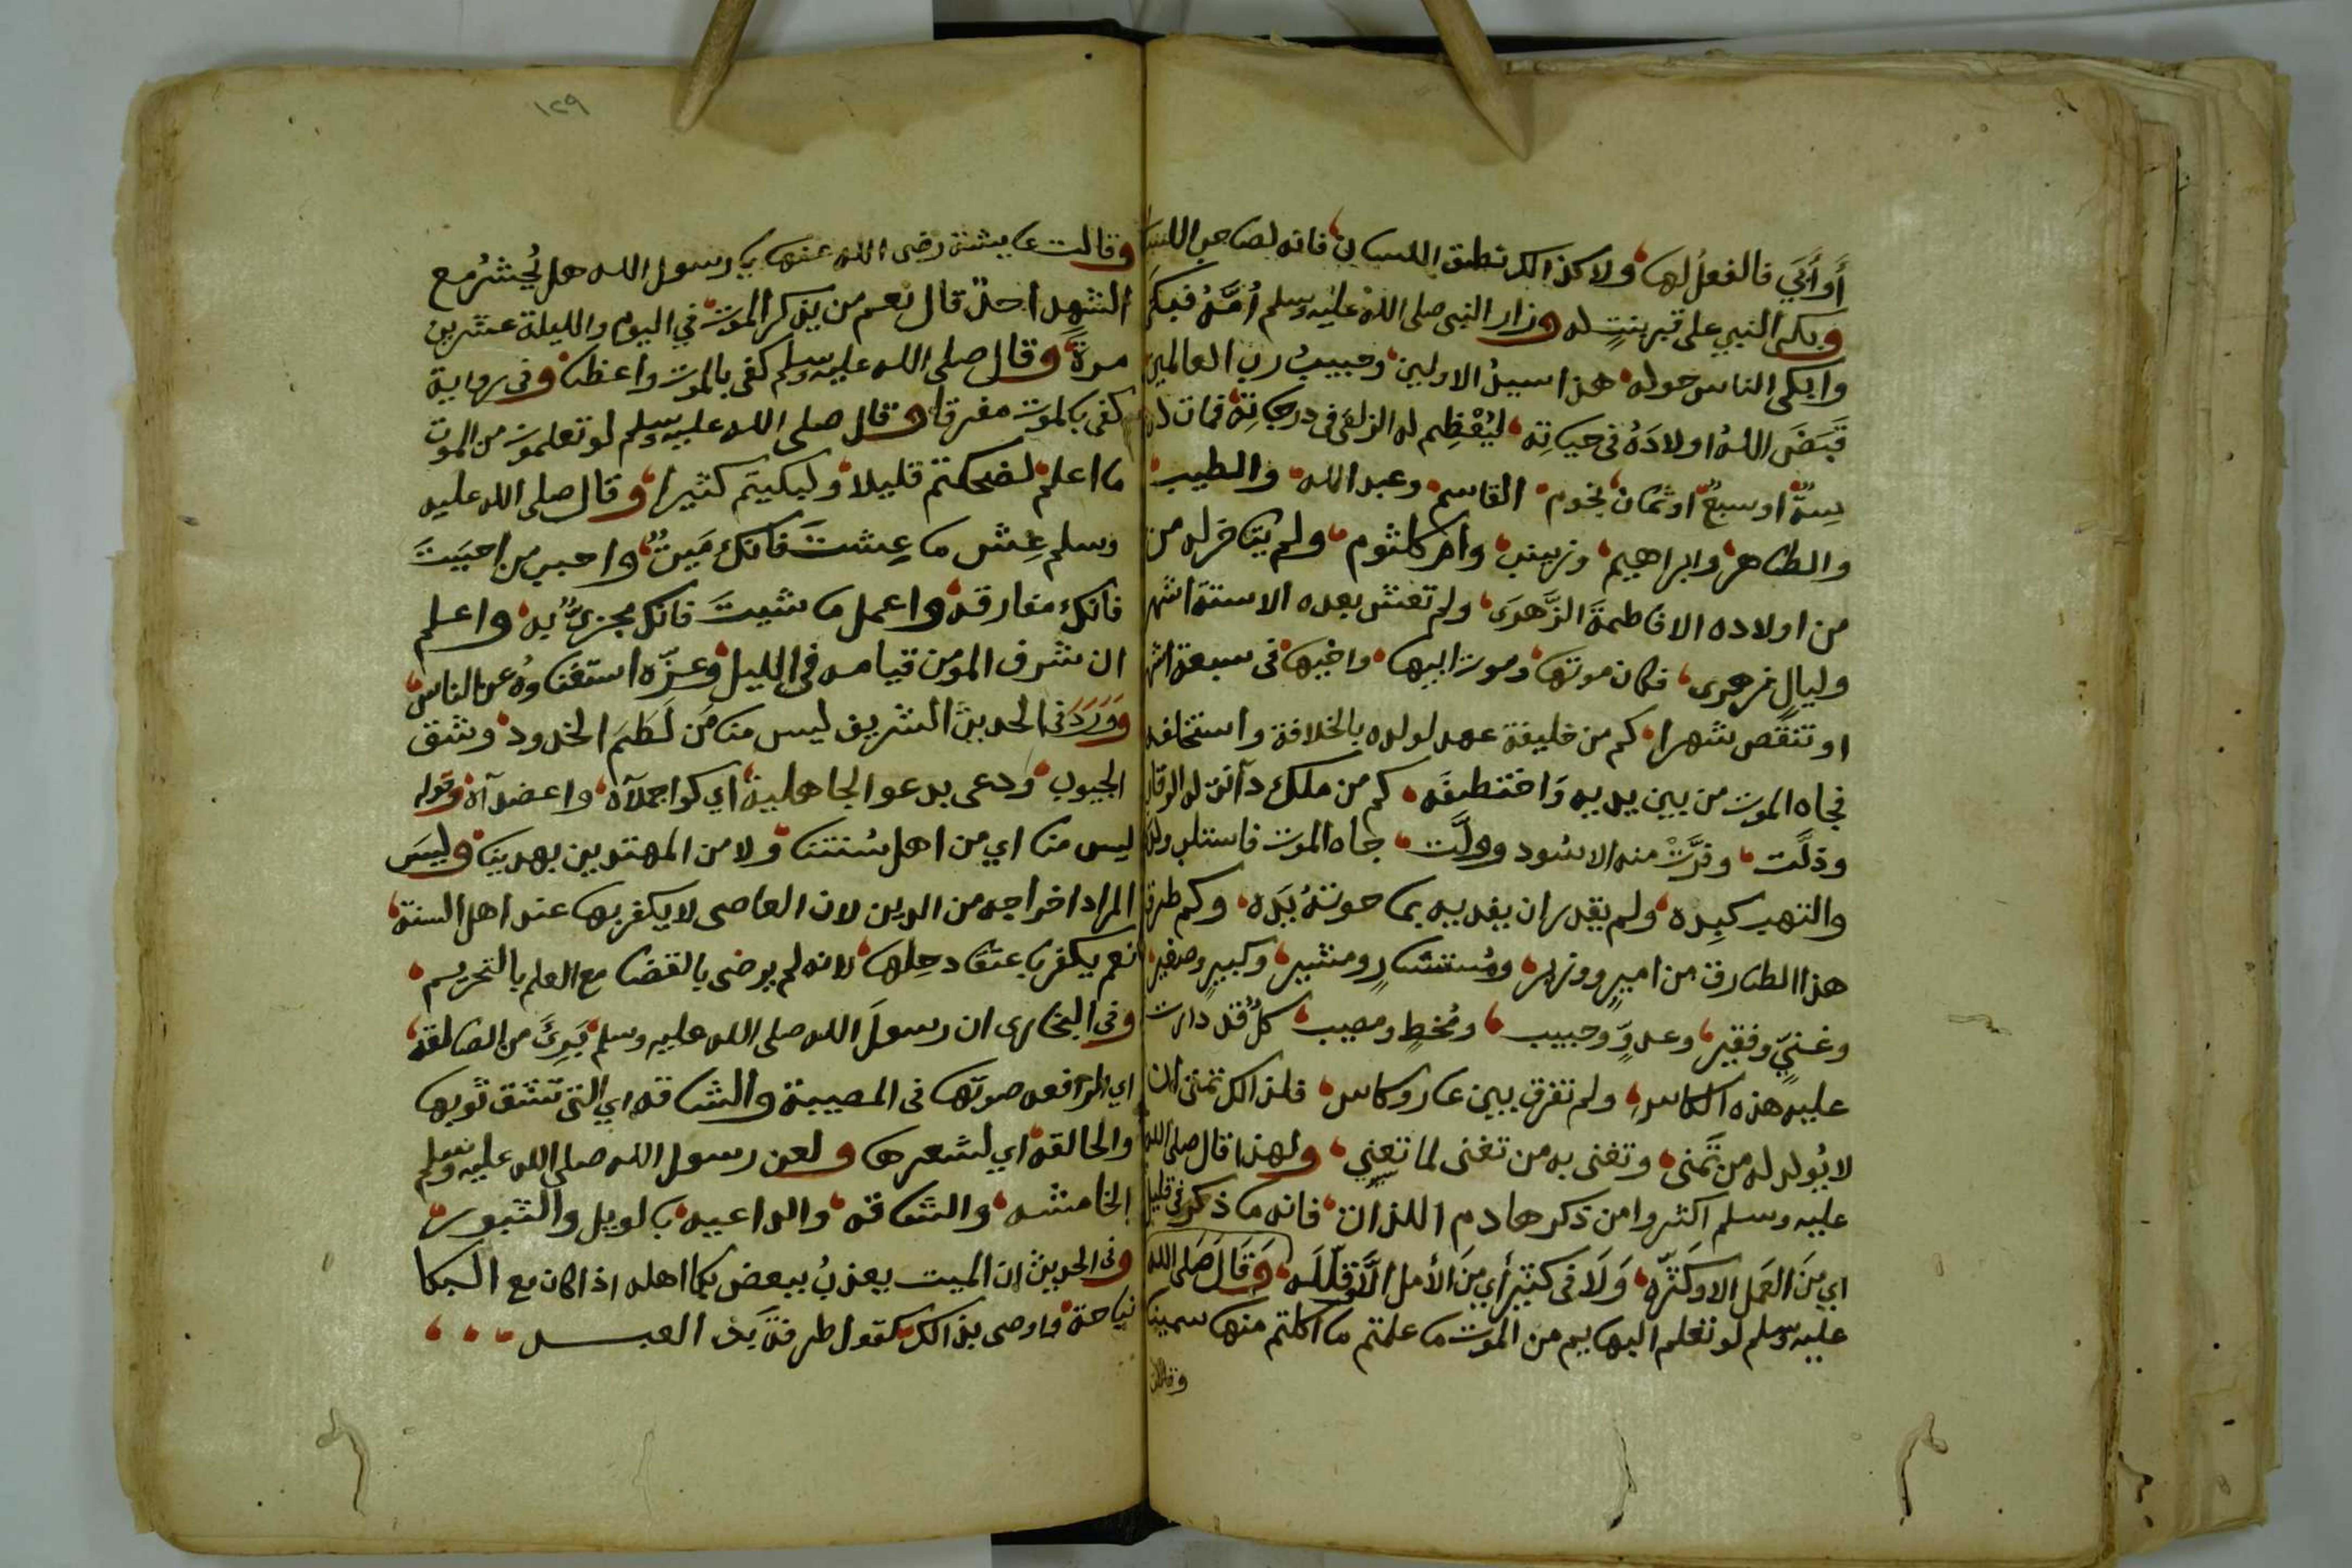 أو أبَي فالفعلُ لها ولا كذالك نطق اللسان فانه لصاحب اللسان
وبكى النبي على قبر بنتٍ له وزار النبي صلى اللهُ عليه وسلم أُمَّهُ فبكَى
وابكى الناس حوله هذا سبيلُ الاولين وحبيبُ رب العالمين
قَبَضَ اللهُ اولادَهُ في حياته ليُعْظِم له الزلفَى في درجاتِهِ فمات له
سِتةٌ او سبعٌ او ثمان نجوم القاسم وعبد الله والطيب
والطاهر وابراهيم وزينب وام كلثوم ولم يتاخر له من
من اولاده الا فاطمةَ الزَّهرَى ولم تعش بعده الا ستةَ اشهر
وليالٍ فكان موتها وموت ابيها واخيها في سبعة اشهر
او تنقص شهرا كم من خليفة عهد لولده بالخلافة واستخلفه
فجاه الموت من بين يديه وَاختطفَه كم من ملك دآنت له الرقاب
وذلَّت وفرَّتْ منه الاسُود وولَّت جاه الموت فاستلب ولده
والتهب كبِده ولم يقدر ان يفديه بما حوتهُ يَدَه وكم طرق
هذا الطارق من اميرٍ ووزير ومُستشارٍ ومشير وكبيرٍ وصغير
وغنيٍّ وفقير وعدوٍّ وحبيب ومُخطٍ ومصيب كلٌ قد دارت
عليه هذه الكاس ولم تفرق بين عارٍ وكاس فلذالك تمنى ان
لا يُولد له من تَمنى وتغنى به من تغنى لما تعِني ولهذا قال صلى الله
عليه وسلم اكثروا من ذكر هادم اللذات فانه ما ذكر في قليل
اي مِنَ العَمل الا وكَثَّره وَلَا في كثيرٍ أي مِنَ الأمل الَّا وقلّلَه وَقَالَ صَلى الله
عليه وسلم لو تعلم البهايم من الموت ما علمتم ما اكلتم منها سمينا
وقالت
١٢٩
وقالت عايشة رضى الله عنها يا رسول الله هل يُحشرُ مع
الشهدا احدٌ قال نعم من يذكر الموت في اليوم والليلة عشرين
مرةً وقال صلى الله عليه وسلم كفى بالموت واعظا وفى رواية
كفى بالموت مفرقا وقال صلى الله عليه وسلم لو تعلموت من الموت
ما اعلم لضحكتم قليلا ولبكيتم كثيرا وقال صلى الله عليه
وسلم عِش ما عِشتَ فانك مَيتٌ واحبب من احبَبتَ
فانك مفارقه واعمل ما شيتَ فانك مجزىٌ به واعلم
ان شرف المومن قيامه في الليل وعزّه استغناوهُ عن الناس
وَوَرَدَ في الحديث الشريف ليس منا مَن لَطَمَ الخدود وشق
الجيوب ودعى بدعو الجاهلية اي كوا جملآه واعضدآه وقوله
ليس منا اي من اهل سُنتنا ولا من المهتدين بهدينا وليسَ
المراد اخراجه من الدين لان العاصى لا يكفر بها عند اهل السنة
نعم يكفر باعتقاد حِلها لانه لم يرضى بالقضا مع العلم بالتحريم
وفي البخارى ان رسولَ الله صلى الله عليه وسلم بَرِئَ من الصالقة
اي الرافعه صوتها فى المصيبة والشاقه اي التى تشق ثوبها
والحالقة اي لشعرها ولعن رسول الله صلى الله عليه وسلم
الخامشه والشاقه والداعيه بالويل والثبور
وفى الحديث ان الميت يعذبُ ببعض بكا اهله اذا كان مع البكا
نياحة واوصى بذالك كقول طرفةَ بن العبد